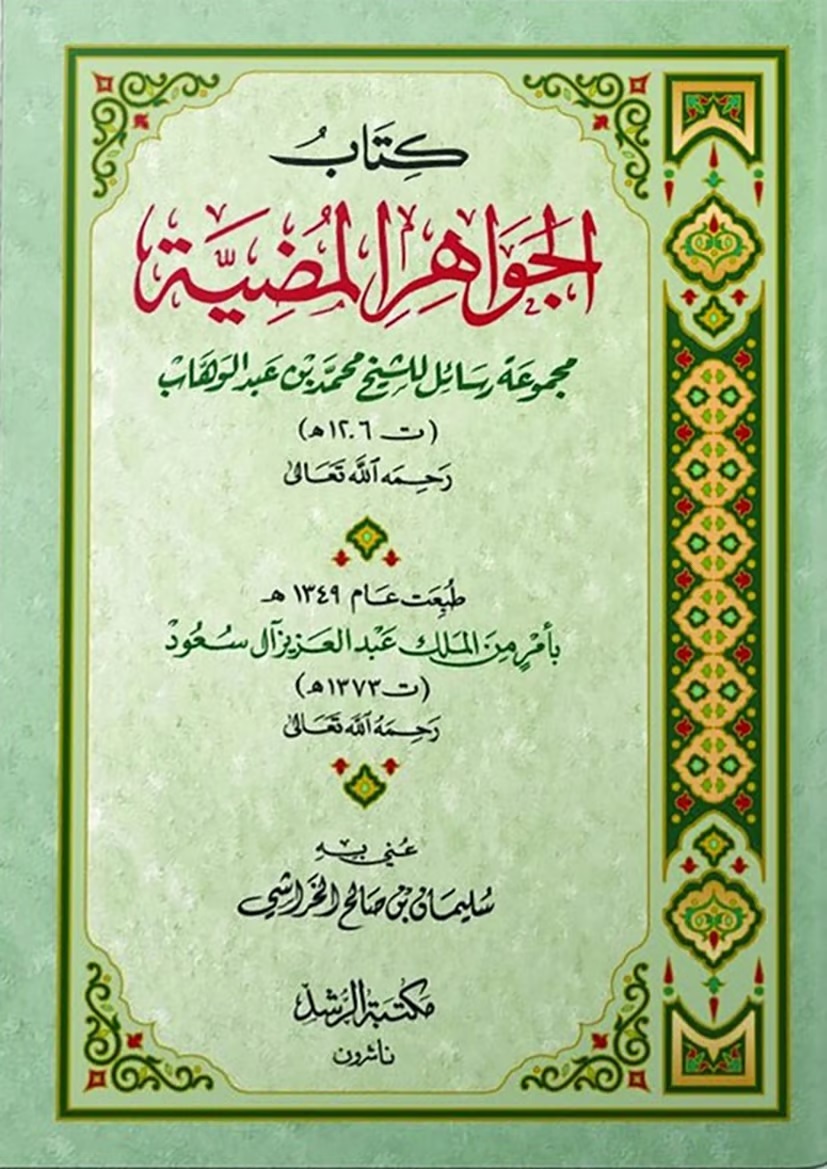 كِتَابُ
الجَوَاهِرِ المُضِيَّة
مجموعة رسائل للشيخ محمد بن عبد الوهاب
(ت ١٢٠٦ هـ)
رَحِمَه اللَّه تَعَالى
طُبِعَت عَام ١٣٤٩ هـ
بأمْرٍ مِنَ المَلك عَبْد العَزيز آل سعُود
(ت ١٣٧٣ هـ)
رَحِمَهُ اللَّه تَعَالى
عُني بهِ
سُليمان بن صالح الخراشي
مكتبة الرشد
ناشرون